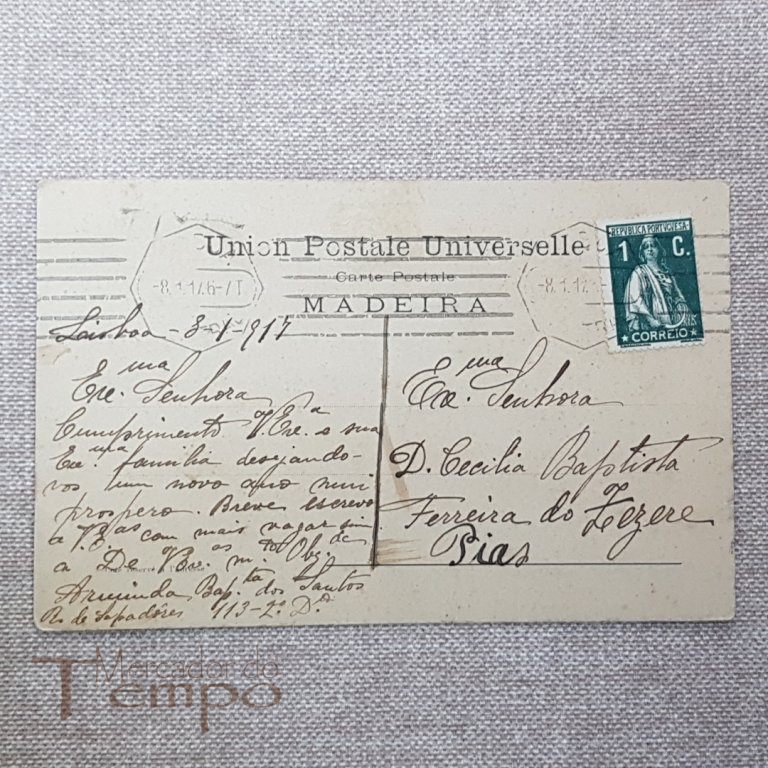 Union Postale Universelle
Carte Postale
MADEIRA
REPUBLICA PORTUGUESA
1 C.
CORREIO
Lisboa - 8-1-917
Exe.ma Senhora
Cumprimento V. Exe.a e sua
Exe.ma familia desejando-
vos um novo ano mui
prospero. Breve escrevo
a com mais vagar sou
a De
Arminda Bap.ta dos Santos
R. de Sapadôres 113-2º D.
Exe.ma Senhora
D. Cecilia Baptista
Ferreira do Zezere
Pias
Mercador do
Tempo